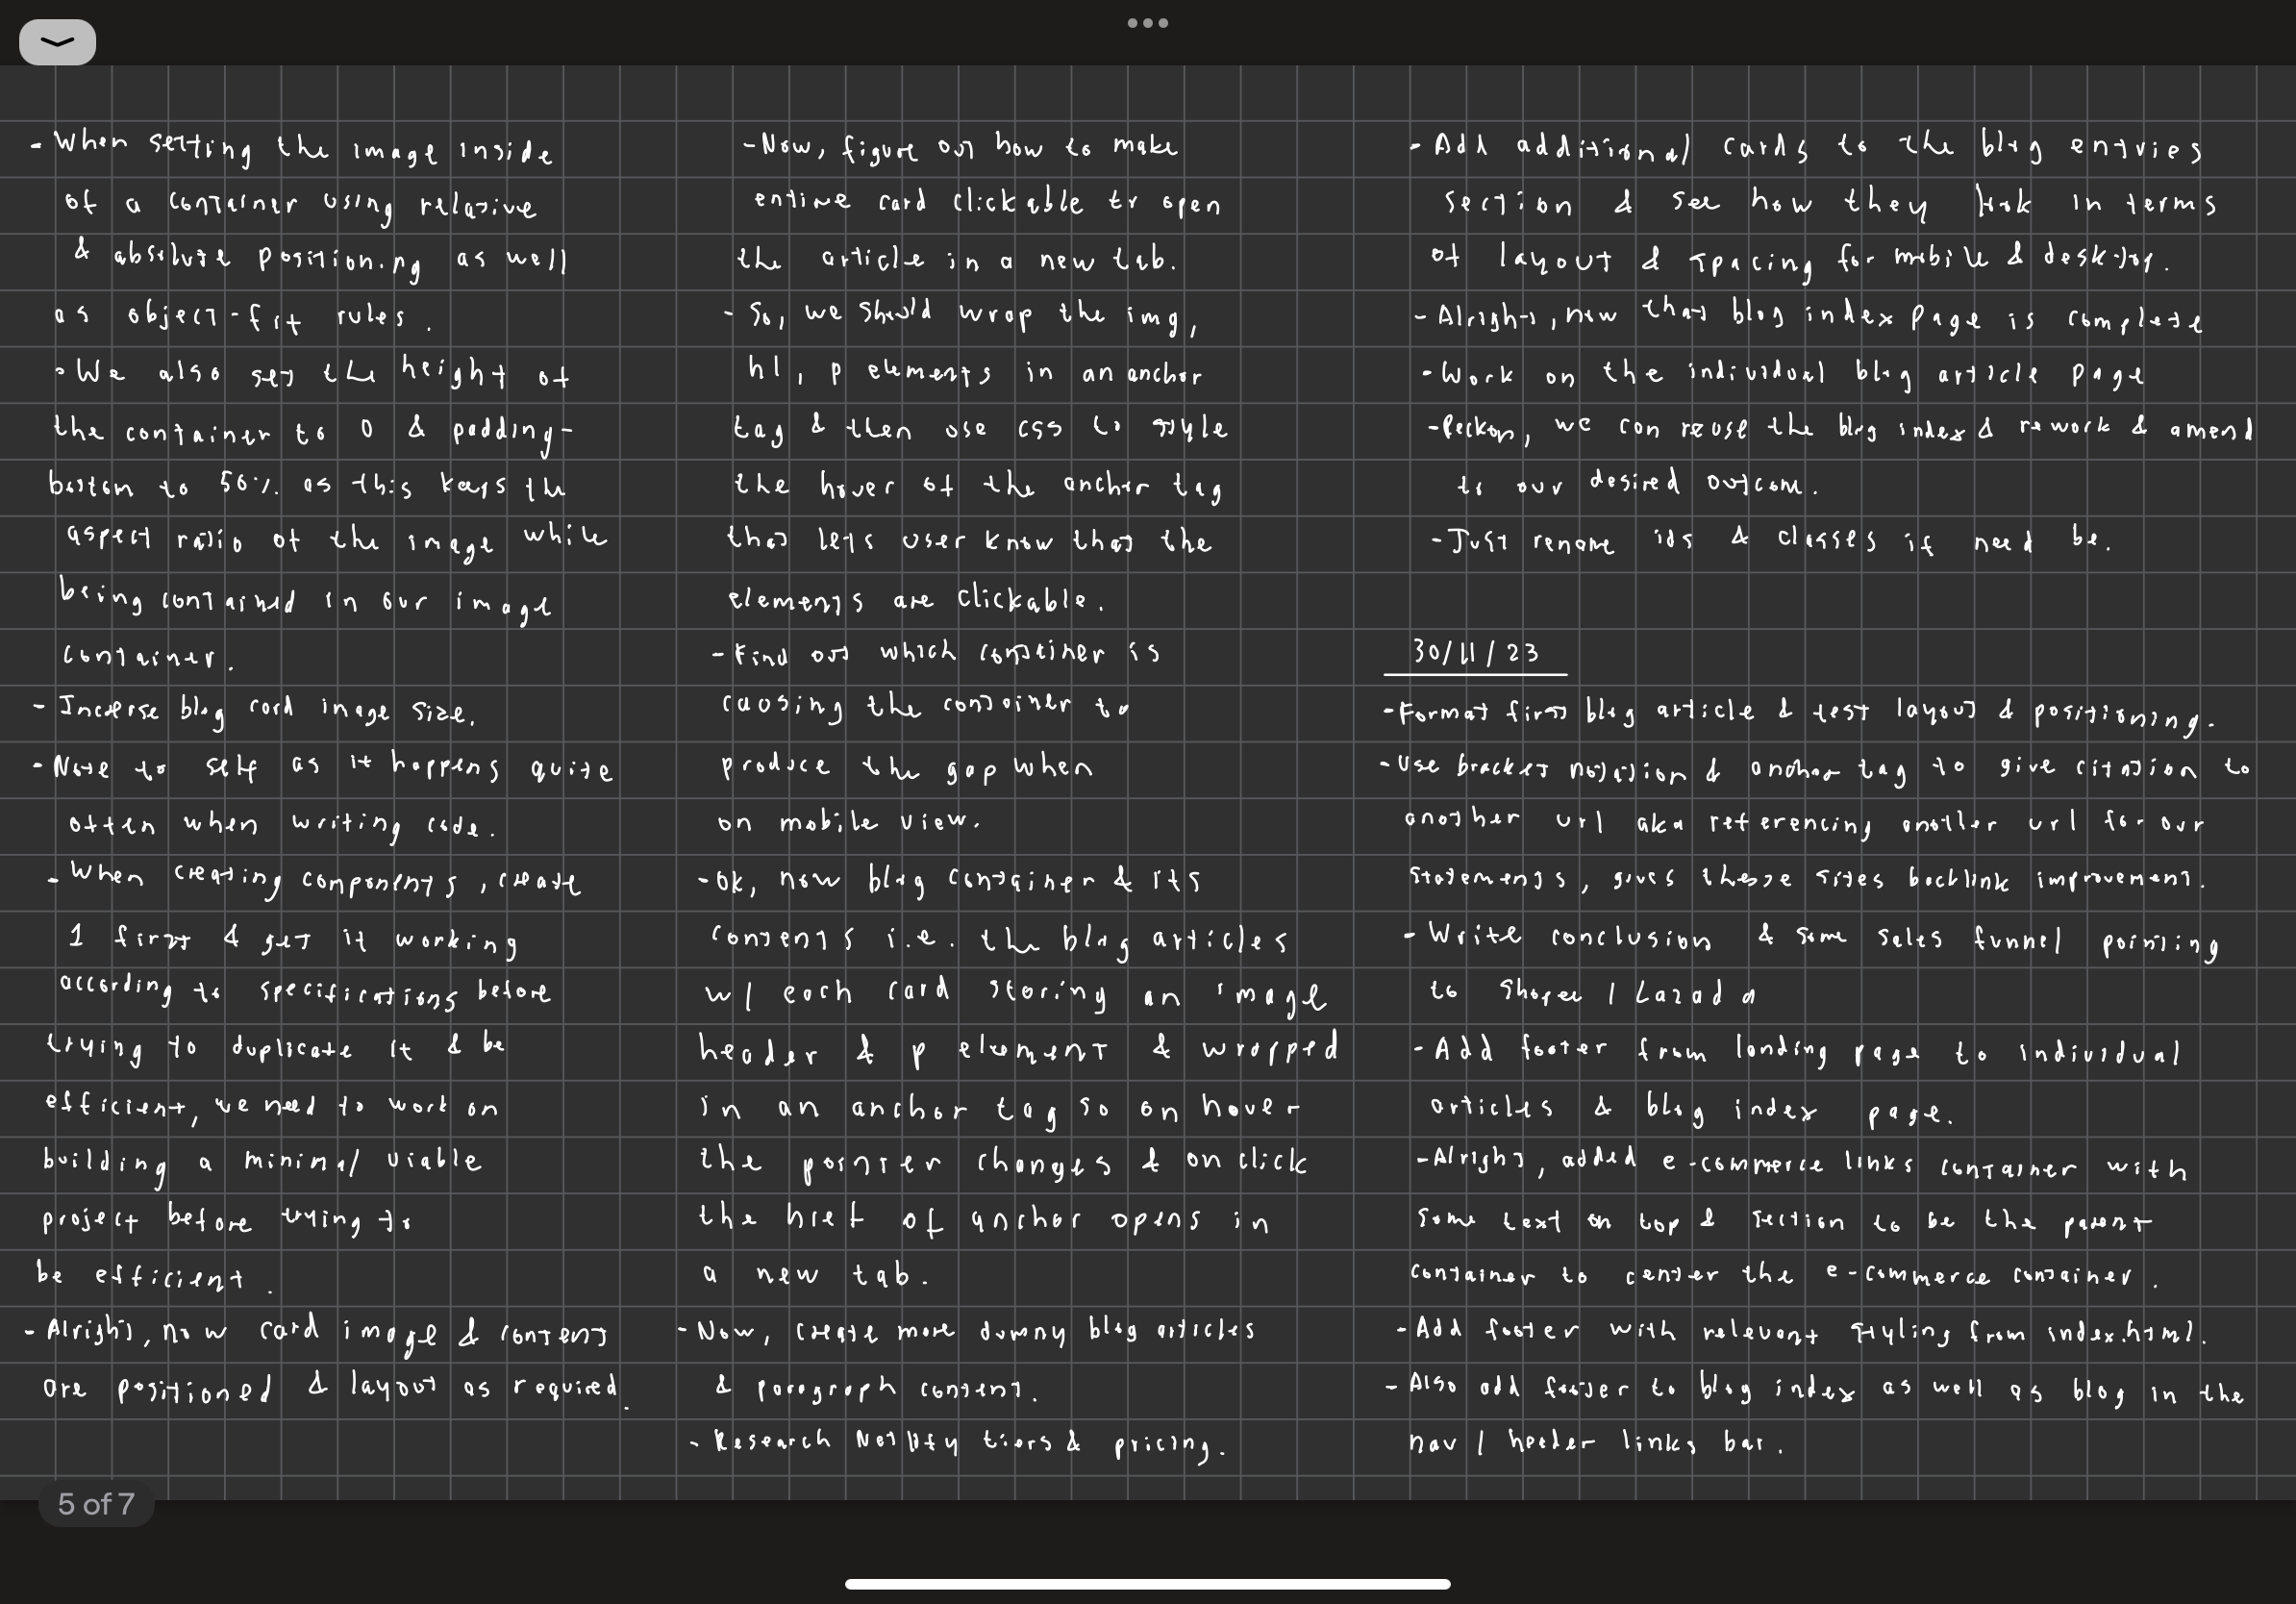 - When setting the image inside
of a container using relative
& absolute positioning as well
as object-fit rules.
- We also set the height of
the container to 0 & padding-
bottom to 50% as this keeps the
aspect ratio of the image while
being contained in our image
container.
- Increase blog card image size.
- Note to self as it happens quite
often when writing code.
- When creating components, create
1 first & get it working
according to specifications before
trying to duplicate it & be
efficient, we need to work on
building a minimal viable
project before trying to
be efficient.
- Alright, now card image & content
are positioned & layout as required.
- Now, figure out how to make
entire card clickable to open
the article in a new tab.
- So, we should wrap the img,
h1, p elements in an anchor
tag & then use css to style
the hover of the anchor tag
that lets user know that the
elements are clickable.
- Find out which container is
causing the container to
produce the gap when
on mobile view.
- Ok, now blog container & its
contents i.e. the blog articles
w/ each card storing an image
header & p element & wrapped
in an anchor tag so on hover
the pointer changes & on click
the href of anchor opens in
a new tab.
- Now, create more dummy blog articles
& paragraph content.
- Research Netlify tiers & pricing.
- Add additional cards to the blog entries
section & see how they look in terms
of layout & spacing for mobile & desktop.
- Alright, now that blog index page is complete
- Work on the individual blog article page
- Reckon, we can reuse the blog index & rework & amend
to our desired outcome.
- Just rename ids & classes if need be.
30/11/23
- Format first blog article & test layout & positioning.
- Use bracket notation & anchor tag to give citation to
another url aka referencing another url for our
statements, gives these sites backlink improvement.
- Write conclusion & some sales funnel pointing
to Shopee / Lazada
- Add footer from landing page to individual
articles & blog index page.
- Alright, added e-commerce links container with
some text on top & section to be the parent
container to center the e-commerce container.
- Add footer with relevant styling from index.html.
- Also add footer to blog index as well as blog in the
nav / header links bar.
5 of 7